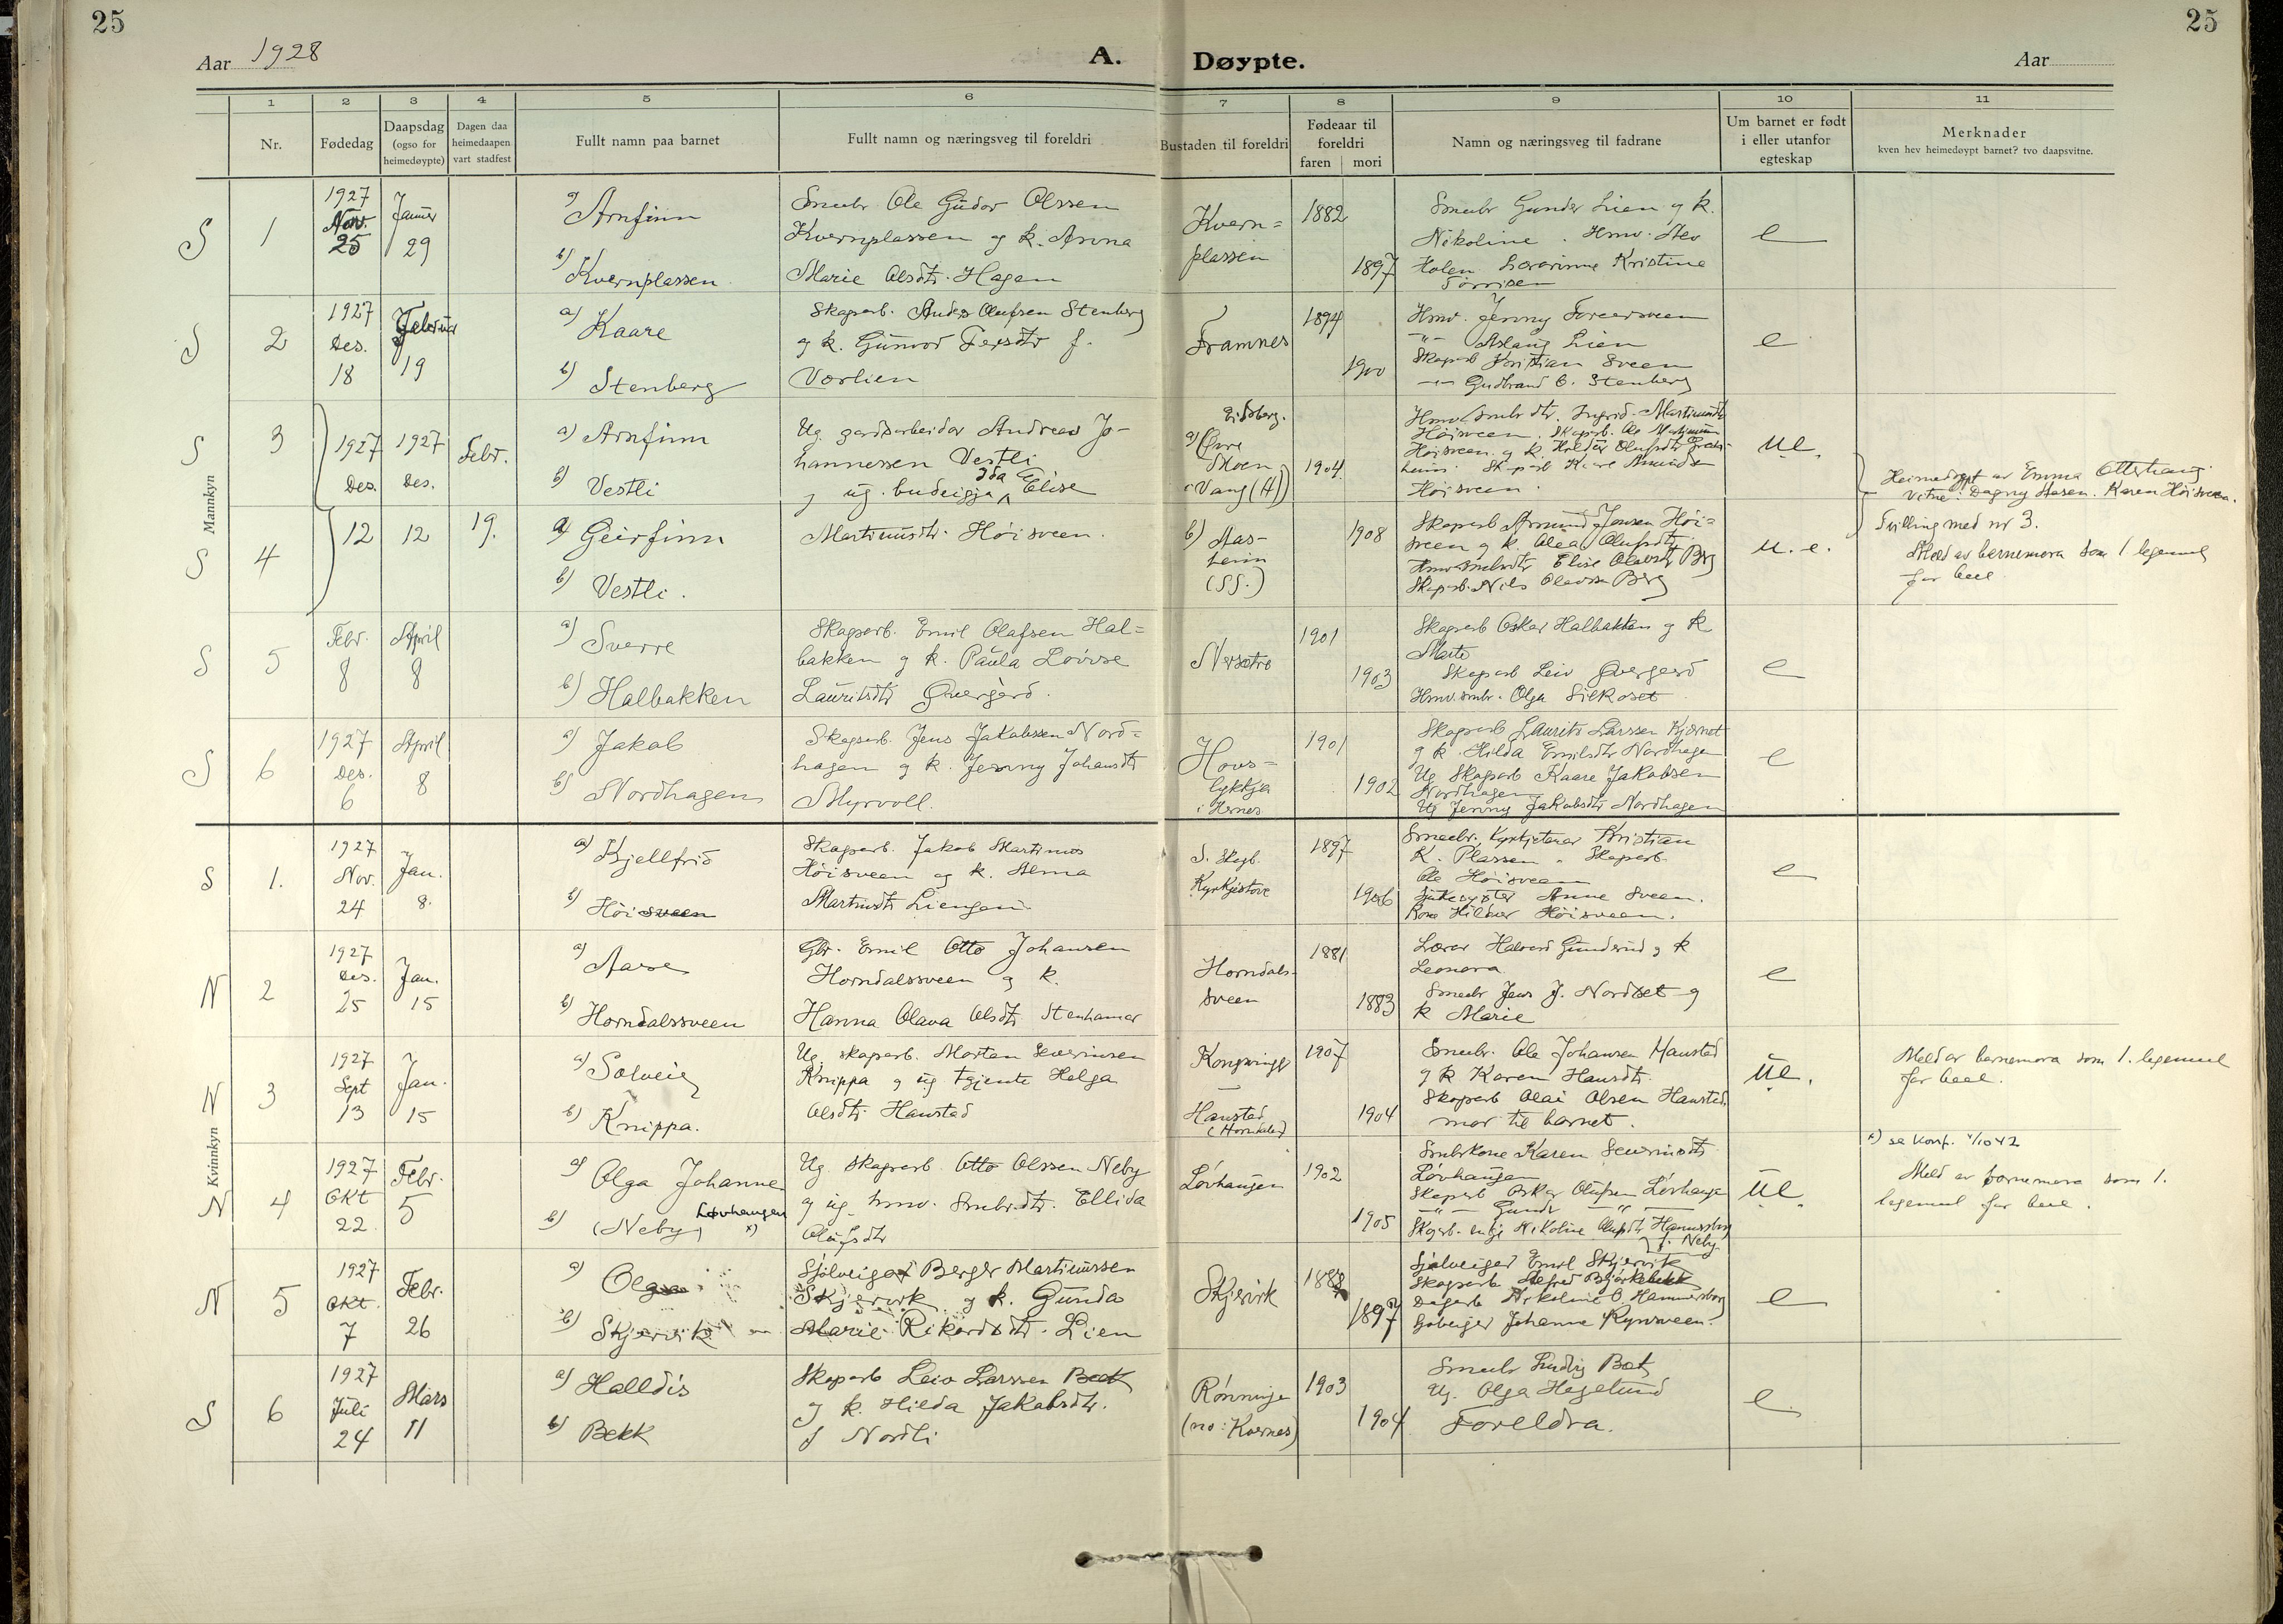 25
25
Aar 1928
A. Døypte.
Aar
1 2 3 4 5 6 7 8 9 10 11
Nr.
Fødedag
Daapsdag
(ogso for
heimedøypte)
Dagen daa
heimedaapen
vart stadfest
Fullt namn paa barnet
Fullt namn og næringsveg til foreldri
Bustaden til foreldri
Fødeaar til
foreldri
faren mori
Namn og næringsveg til fadrane
Um barnet er født
i eller utanfor
egteskap
Merknader
kven hev heimedøypt barnet? tvo daapsvitne.
Mannkyn
S 1
1927
Nov.
25
Januar
29
a) Arnfinn
b) Kvernplassen
Smbr. Ole Gudor Olssen
Kvernplassen og k. Anna
Marie Olsdtr. Hagen
Kvern=
plassen
1882
1897
Smbr Gunder Lien og k.
Nikoline . Hmv.
Holen Lærarinne Kristine
e
S 2
1927
Des.
18
Februar
19
a) Kaare
b) Stenberg
Skogarb. Anders Olufsen Stenberg
og k. Gunvor Persdtr f.
Vorlien
Framnes
1894
1900
Hmv. Jenny
-"- Aslaug Lien
Skogarb Kristian Sveen
-"- Gudbrand O. Stenberg
e
S 3
1927
Des.
12
1927
Des.
12
Febr.
19.
a) Arnfinn
b) Vestli
Ug. gardsarbeidar Andreas Jo-
hannessen Vestli
og ug. budeigja Ida Elise
Martinusdtr. Höisveen.
Eidsberg.
a) Øvre
Moen
Vang (H)
1904
Hmv Smbr dtr. Ingrid Martinusdtr
Höisveen. Skogarb. Ole Martinussen
Höisveen og k. Olufsdtr
Höisveen.
u.e.
Heimedøypt av Emma Otterhaug
Vitne: Dagny Aasen. Karen Höisveen.
S 4
a) Geirfinn
b) Vestli.
b) Aas-
heim
(SS.)
1908
Skogarb Amund Jonsen Höi=
sveen og k. Olea Olufsdtr
Hmv Smbrdtr Elise Olavsdtr Berg
Skogarb. Nils Olavsen Berg
u. e.
Tvilling med nr 3.
Meld av barnemora som 1 legemul
far bcel
S 5
Febr.
8
April
8
a) Sverre
b) Halbakken
Skogarb. Emil Olafsen Hal=
bakken og k. Paula Lovise
Lauritsdtr Øvergård.
Nersætre
1901
1903
Skogarb Oskar Halbakken og k
Marte
Skogarb Leiv Øvergård
Hmv. smbr. Olga Silkoset
e
S 6
1927
Des.
6
April
8
a) Jakob
b) Nordhagen
Skogarb. Jens Jakobssen Nord=
hagen og k. Jenny Johansdtr
Myrvoll.
Hovs=
lykkja
i Hernes
1901
1902
Skogarb Laurits Larssen Kjernet
og k. Hilda Emilsdtr Nordhagen
Ug Skogarb Kaare Jakobsen
Nordhagen
Ug Jenny Jakobsdtr Nordhagen
e
Kvinnkyn
S 1.
1927
Nov.
24
Jan.
8.
a) Kjellfrid
b) Höisveen
Skogarb. Jakob Martinus
Höisveen og k. Alma
Martinsdtr Liengen
S. Skogb.
Kyrkjestove
1897
1906
Smbr. Kyrkjetenar Kristian
K. Plassen . Skogarb.
Ole Höisveen
Sjukesyster Anne Sveen.
Kona Hildur Höisveen.
e
N 2
1927
Des.
25
Jan.
15
a) Aase
b) Horndalssveen
Gbr. Emil Otto Johansen
Horndalssveen og k.
Hanna Olava Olsdtr Stenhamar
Horndals-
sveen
1881
1883
Lærar Halvard Gunderud og k
Leonora
Smbr Jens J. Nordset og
k Marie
e
N 3
1927
Sept
13
Jan.
15
a) Solveig
b) Knippa.
Ug. skogarb. Morten Severinsen
Knippa og ug tjente Helga
Olsdtr. Haustad
Kongsvinger
Haustad
(Horndalen)
1907
1904
Smbr. Ole Johansen Haustad
og k Karen Hansdtr.
Skogarb Olai Olsen Haustad.
mor til barnet.
u.e.
Meld av barnemora som 1. legemul
far bcel.
N 4
1927
Okt
22.
Febr.
5
a) Olga Johanne
b) (Neby) Løvhaugen x)
Ug. Skogarb. Otto Olssen Neby
og ug. hmv. Smbrdtr. Ellida
Olufsdtr
Lövhaugen
1902
1905
Smbrkone Karen Severinsdtr
Lövhaugen
Skogarb Oskar Olufsen Lövhaugen
-"- Gunder -"-
Skogarb. enkje Nikoline Olufsdtr Hammersborg
f. Neby
u.e.
x) se Konf. 4/10 42
Meld av barnemora som 1.
legemul far bcel.
N 5
1927
Okt.
7
Febr.
26
a) Olga
b) Skjervik
Sjölveigar Berger Martinussen
Skjervik og k. Gunda
Marie Rikardsdtr. Lien
Skjervik
1888
1897
Sjölveigar Emil Skjervik
Skogarb Alfred Björkebekk
Dagarb Nikoline O. Hammersborg
Johanne Rynsveen.
e
S 6
1927
Juli
24
Mars
11
a) Halldis
b) Bekk
Skogarb Leiv Larssen Bekk
og k. Hilda Jakobsdtr.
f Nordli
Rönninge
(no: Kvernes)
1903
1904
Smbr Ludvig
Ug. Olga Hagelund
Foreldra.
e